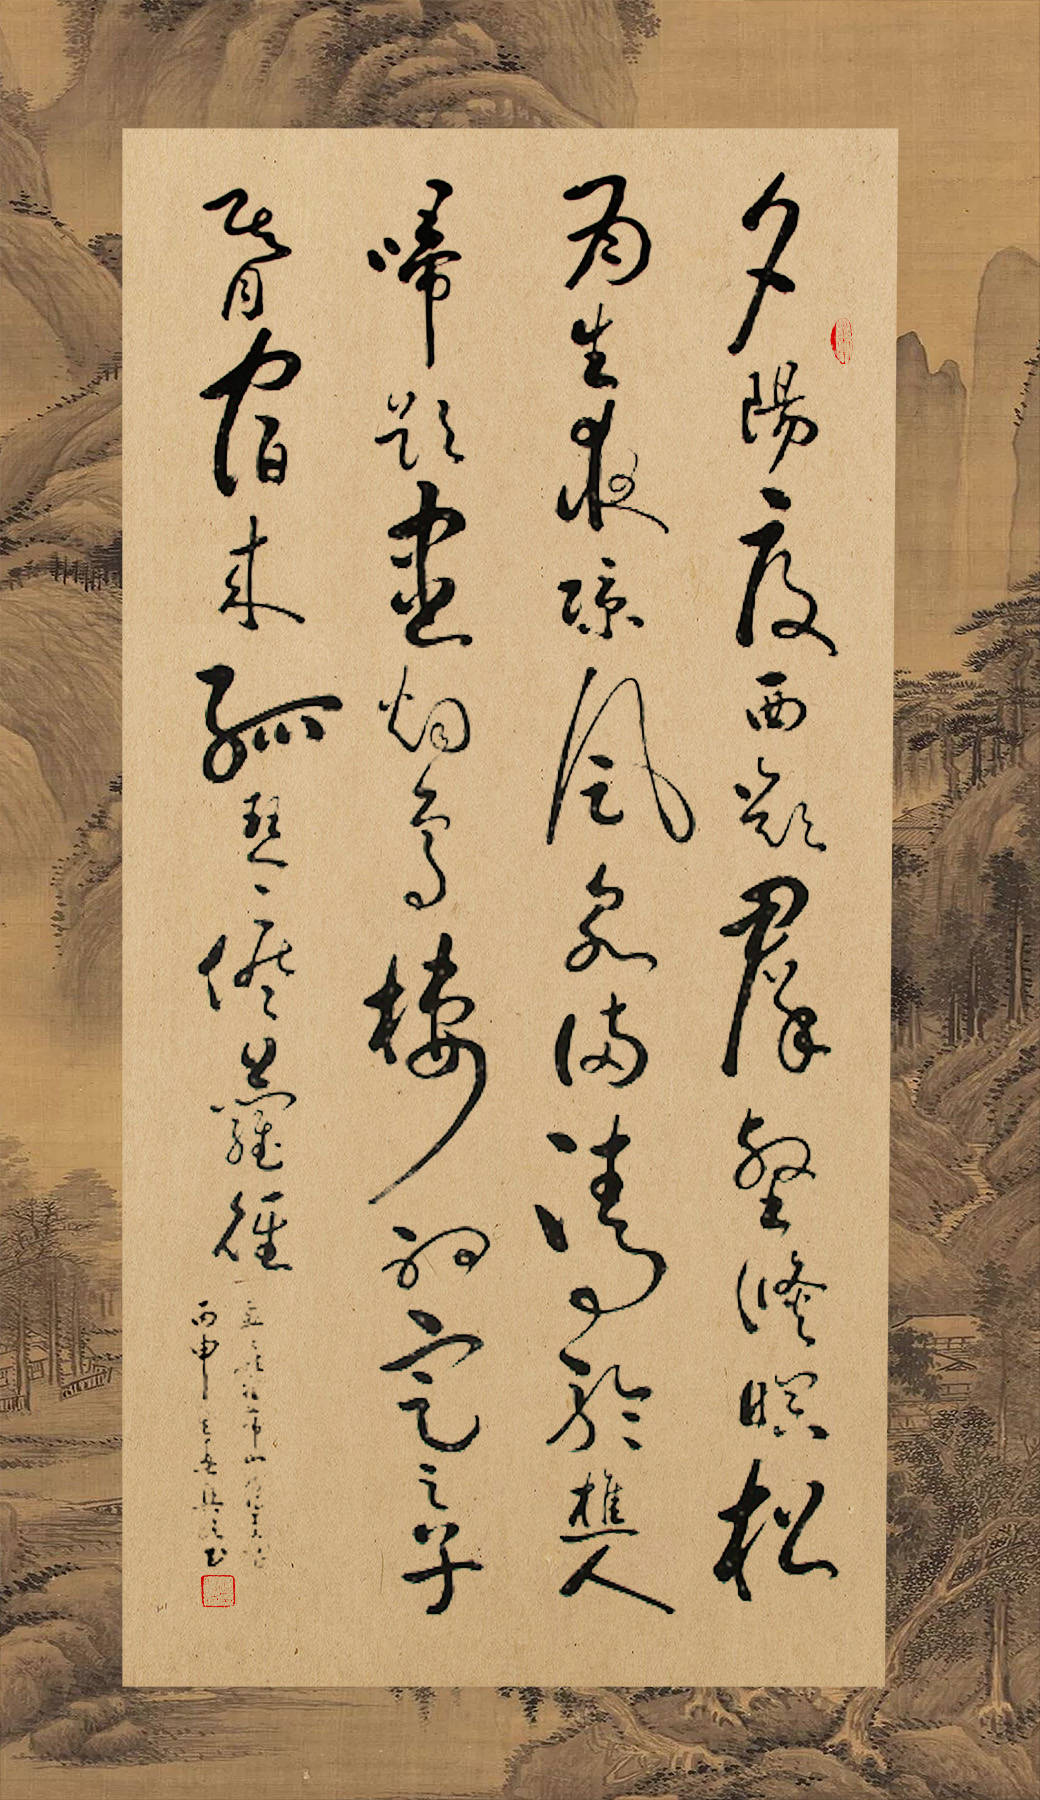 夕陽度西嶺羣壑倏暝松
月生夜涼風泉滿清聽樵人
歸欲盡煙鳥棲初定之子
期宿來孤琴候蘿徑
丙申